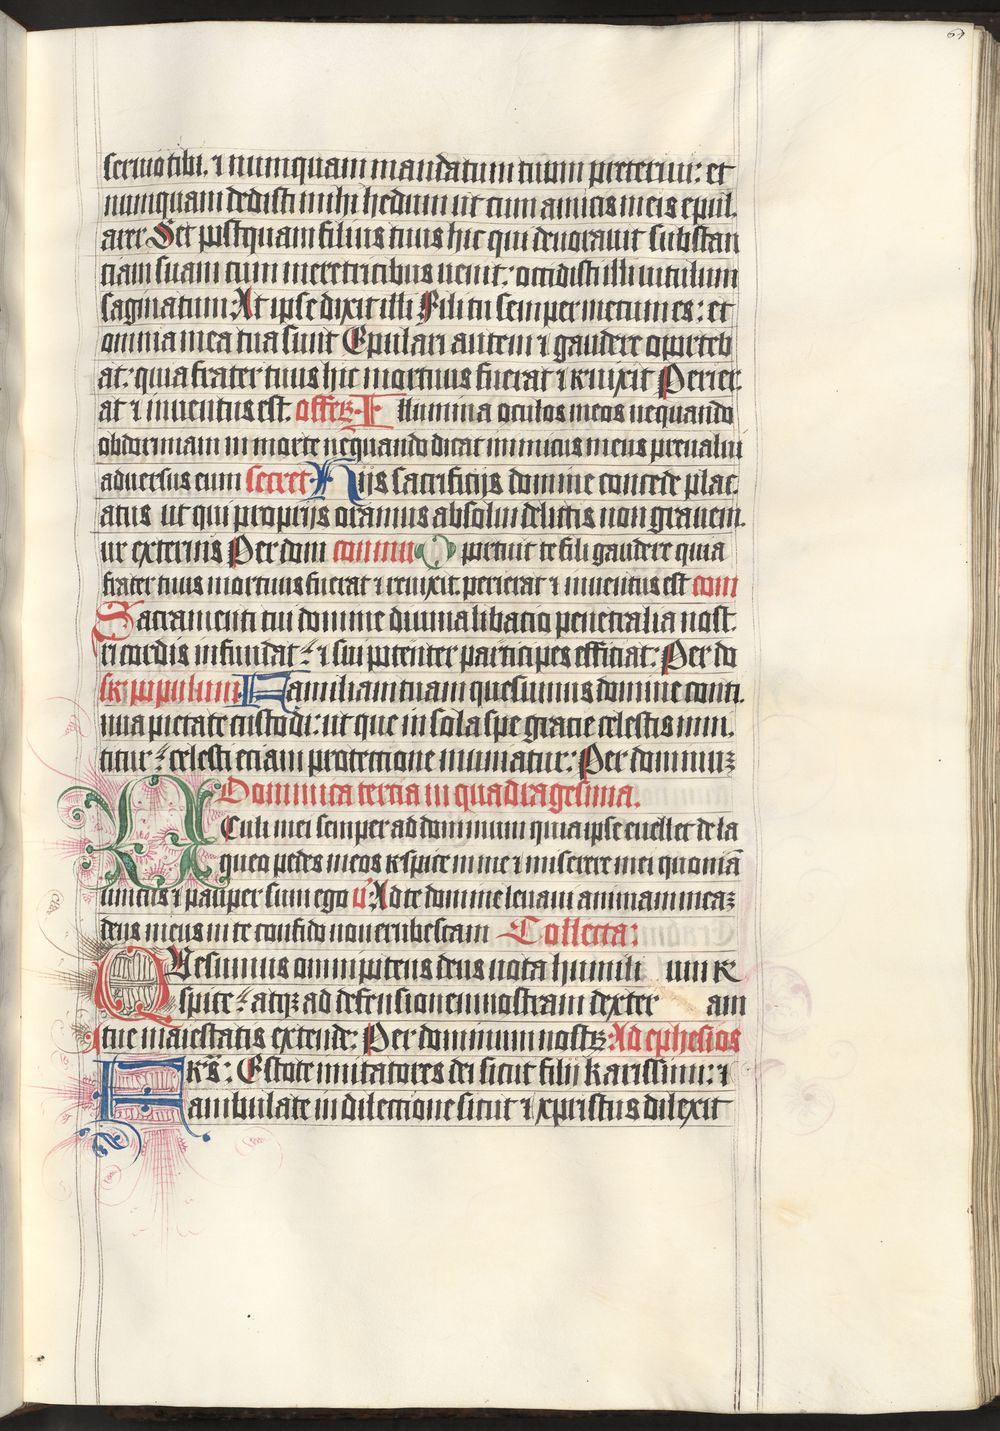 64
servio tibi. ⁊ numquam mandatum tuum preterivi: et
numquam dedisti mihi hedum ut cum amicis meis epul.
arer Set postquam filius tuus hic qui devoravit substan
ciam suam cum meretricibus venit: occidisti illi vitulum
saginatum: At ipse dixit illi Fili tu semper mecum es: et
omnia mea tua sunt Epulari autem ⁊ gaudere oporteb
at: quia frater tuus hic mortuus fuerat ⁊ revixit Perier.
at ⁊ inventus est. offer. Illumina oculos meos nequando
obdormiam in morte nequando dicat inimicus meus prevalui
adversus eum secret. Hiis sacrificijs domine concede plac.
atus ut qui proprijs oramus absolvi delictis non gravem.
ur externis Per dom commu Oportuit te fili gaudere quia
frater tuus mortuus fuerat ⁊ revixit. perierat ⁊ inventus est com
Sacramenti tui domine divina libacio penetralia nost.
ri cordis infundat: ⁊ sui potenter participes efficiat: Per do
sr populum Familiam tuam quesumus domine conti.
nua pietate custodi: ut que in sola spe gracie celestis inni.
titur: celesti eciam protectione muniatur: Per dominuz
Dominica tercia in quadragesima.
Oculi mei semper ad dominum quia ipse evellet de la
queo pedes meos respice in me ⁊ miserere mei quoniā
unicus ⁊ pauper sum ego v̄ Ad te domine levavi animam meaz
deus meus in te confido non erubescam Collecta:
Quesumus omnipotens deus vota humili um re
spice: atqꝫ ad defensionem nostram dexter am
tue maiestatis extende: Per dominum nostꝝ: Ad ephesios
Frēs: Estote imitatores dei sicut filij karissimi: ⁊
ambulate in dilectione sicut ⁊ xpristus dilexit